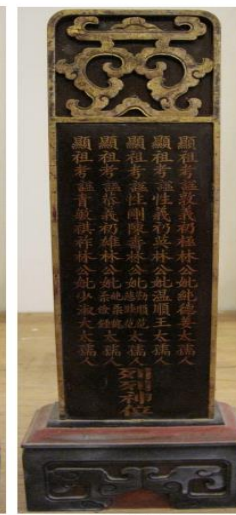 顯祖考諡敦義初極林公妣純德姜太孺人
顯祖考諡性義初英林公妣溫順王太孺人
顯祖考諡性剛壽林公妣勤順太孺人
顯祖考諡義初雄林公妣太孺人
顯祖考諡祺祥林公妣少淑太孺人
神位